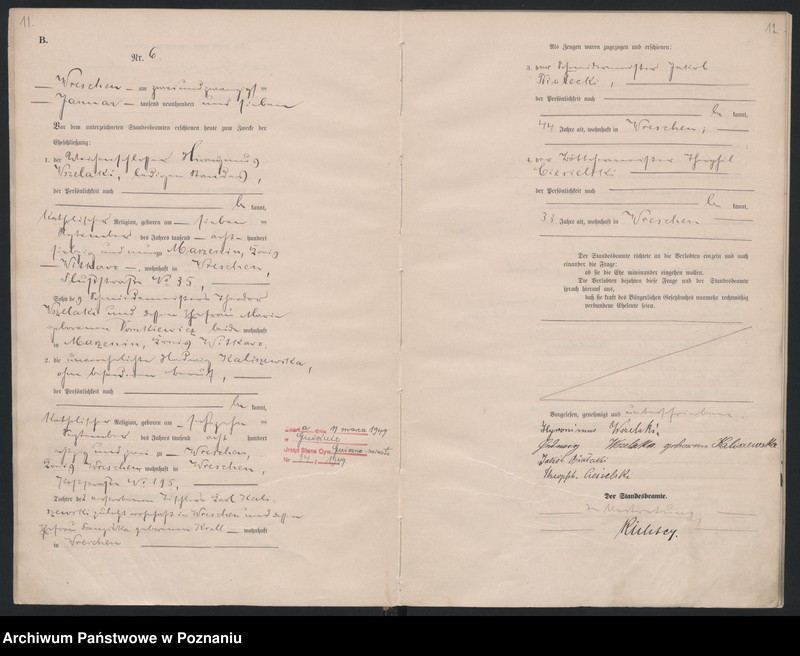 11.
B.
Nr. 6.
Wreschen am zwei und zwanzigsten
Januar tausend neunhundert und sieben
Vor dem unterzeichneten Standesbeamten erschienen heute zum Zwecke der
Eheschließung:
1. der Hieronymus
ledigen Standes,
der Persönlichkeit nach
be kannt,
katholischer Religion, geboren am sieben ten
September des Jahres tausend acht hundert
siebzig und neun zu Marzenin, Kreis
Witkowo, wohnhaft in Wreschen,
Schloßstraße No. 35,
Sohn des Schmiedemeisters Theodor
und dessen Ehefrau Maria
geborenen Tomkiewicz beide wohnhaft
in Marzenin, Kreis Witkowo.
2. die unverehelichte Hedwig Kaliszewska,
ohne besonderen Beruf,
der Persönlichkeit nach
be kannt,
katholischer Religion, geboren am
September des Jahres tausend acht hundert
achtzig und zwei zu Wreschen,
Kreis Wreschen wohnhaft in Wreschen,
No. 195,
Tochter des verstorbenen Tischlers Karl Kali-
szewski zuletzt wohnhaft in Wreschen und dessen
Ehefrau geborenen Kroll wohnhaft
in Wreschen
dnia 9 marca 1949
w Gnieźnie
Urząd Stanu Cyw. Gniezno-miasto
Nr 1949
12.
Als Zeugen waren zugezogen und erschienen:
3. der Schmiedemeister Jakob
Białecki,
der Persönlichkeit nach
be kannt,
44 Jahre alt, wohnhaft in Wreschen;
4. der Böttchermeister Theophil
Ciesielski
der Persönlichkeit nach
be kannt,
33 Jahre alt, wohnhaft in Wreschen
Der Standesbeamte richtete an die Verlobten einzeln und nach
einander die Frage:
ob sie die Ehe miteinander eingehen wollen.
Die Verlobten bejahten diese Frage und der Standesbeamte
sprach hierauf aus,
daß sie kraft des Bürgerlichen Gesetzbuchs nunmehr rechtmäßig
verbundene Eheleute seien.
Vorgelesen, genehmigt und unterschrieben.
Hyronimus
geborene Kaliszewska
Jakób Białecki
Theophil Ciesielski
Der Standesbeamte.
In Vertretung
Archiwum Państwowe w Poznaniu